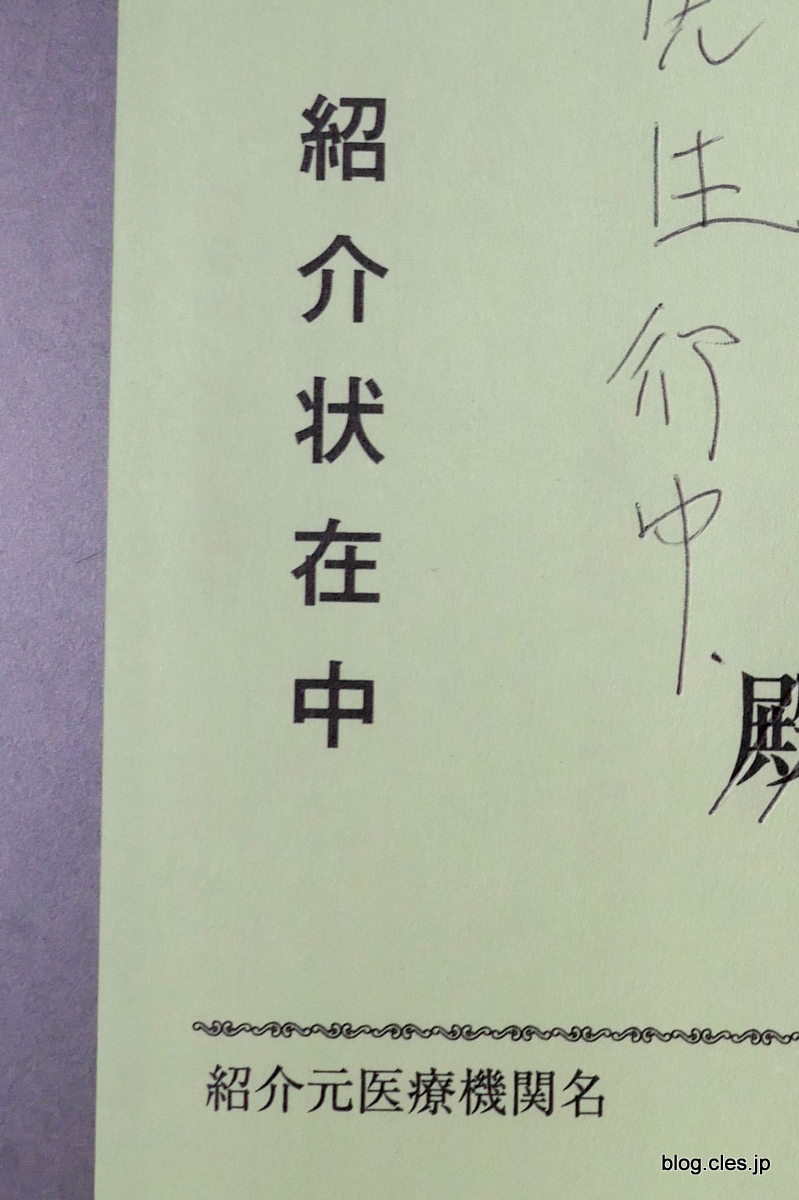 先生
御中
殿
紹介状在中
紹介元医療機関名
blog.cles.jp